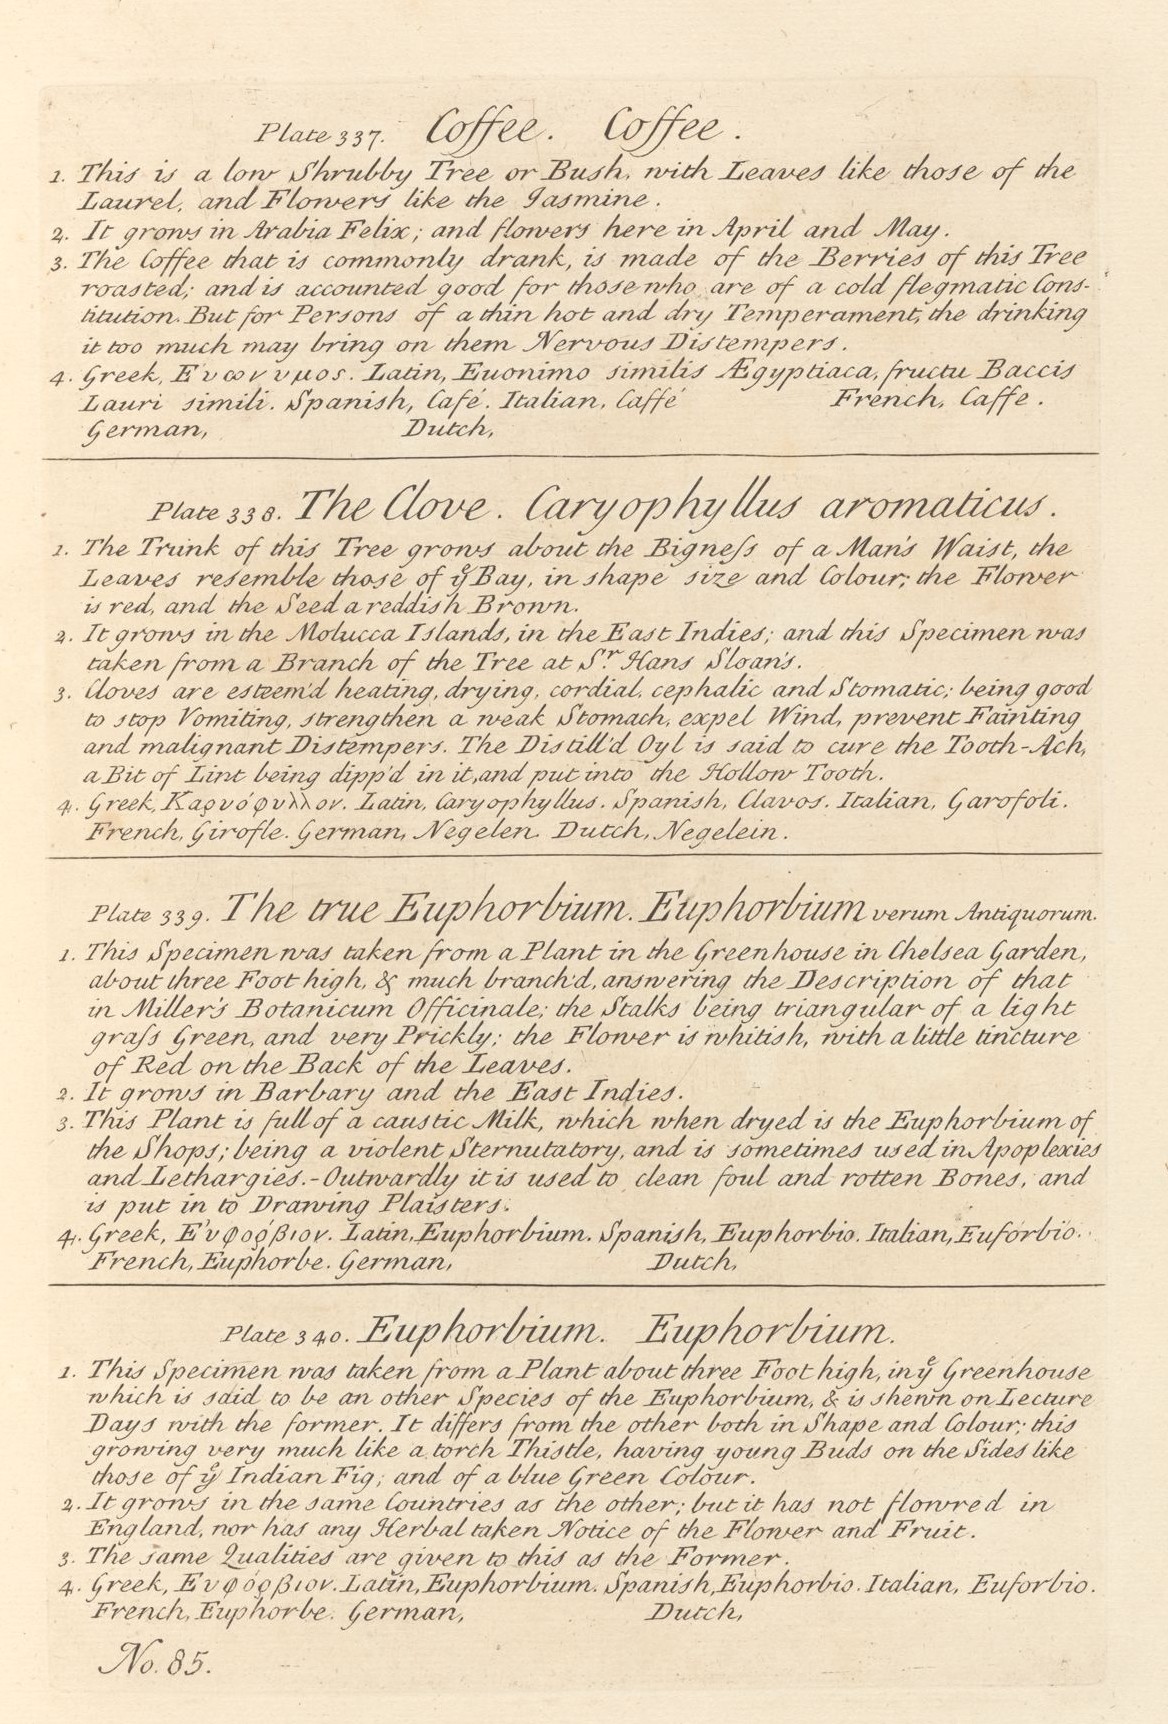 Plate 337. Coffee. Coffee.
1. This is a low Shrubby Tree or Bush, with Leaves like those of the
Laurel, and Flowers like the Jasmine.
2. It grows in Arabia Felix; and flowers here in April and May.
3. The Coffee that is commonly drank, is made of the Berries of this Tree
roasted; and is accounted good for those who are of a cold flegmatic Cons-
titution. But for Persons of a thin hot and dry Temperament, the drinking
it too much may bring on them Nervous Distempers.
4. Greek, Ευωνυμος. Latin, Euonimo similis Ægyptiaca, fructu Baccis
Lauri simili. Spanish, Café. Italian, Caffé French, Caffe.
German, Dutch,
Plate 338. The Clove. Caryophyllus aromaticus.
1. The Trunk of this Tree grows about the Bigneſs of a Man's Waist, the
Leaves resemble those of yͤ Bay, in shape size and Colour; the Flower
is red, and the Seed a reddish Brown.
2. It grows in the Molucca Islands, in the East Indies; and this Specimen was
taken from a Branch of the Tree at Sʳ. Hans Sloan's.
3. Cloves are esteem'd heating, drying, cordial, cephalic and Stomatic; being good
to stop Vomiting, strengthen a weak Stomach, expel Wind, prevent Fainting
and malignant Distempers. The Distill'd Oyl is said to cure the Tooth-Ach,
a Bit of Lint being dipp'd in it, and put into the Hollow Tooth.
4. Greek, Καρυόφυλλον. Latin, Caryophyllus. Spanish, Clavos. Italian, Garofoli.
French, Girofle. German, Negelen. Dutch, Negelein.
Plate 339. The true Euphorbium. Euphorbium verum Antiquorum.
1. This Specimen was taken from a Plant in the Greenhouse in Chelsea Garden,
about three Foot high, & much branch'd, answering the Description of that
in Miller's Botanicum Officinale; the Stalks being triangular of a light
graſs Green, and very Prickly; the Flower is whitish, with a little tincture
of Red on the Back of the Leaves.
2. It grows in Barbary and the East Indies.
3. This Plant is full of a caustic Milk, which when dryed is the Euphorbium of
the Shops; being a violent Sternutatory, and is sometimes used in Apoplexies
and Lethargies.-Outwardly it is used to clean foul and rotten Bones, and
is put in to Drawing Plaisters.
4. Greek, Ἐυφορβιον. Latin, Euphorbium. Spanish, Euphorbio. Italian, Euforbio.
French, Euphorbe. German, Dutch,
Plate 340. Euphorbium. Euphorbium.
1. This Specimen was taken from a Plant about three Foot high, in yͤ Greenhouse
which is said to be an other Species of the Euphorbium, & is shewn on Lecture
Days with the former. It differs from the other both in Shape and Colour; this
growing very much like a torch Thistle, having young Buds on the Sides like
those of yͤ Indian Fig; and of a blue Green Colour.
2. It grows in the same Countries as the other; but it has not flowred in
England, nor has any Herbal taken Notice of the Flower and Fruit.
3. The same Qualities are given to this as the Former.
4. Greek, Ευφόρβιον. Latin, Euphorbium. Spanish, Euphorbio. Italian, Euforbio.
French, Euphorbe. German, Dutch,
No. 85.